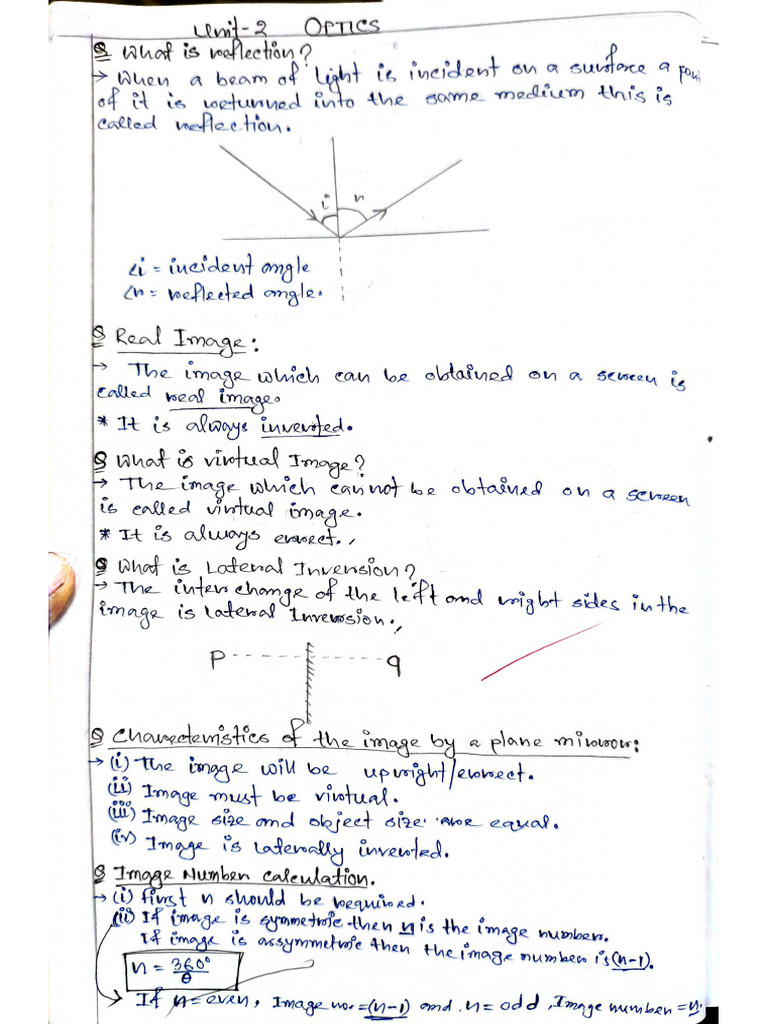 Unit-2 OPTICS
Q What is reflection?
→ When a beam of light is incident on a surface a
of it is returned into the same medium this is
called reflection.
i r
∠i = incident angle
∠r = reflected angle.
Q Real Image:
→ The image which can be obtained on a screen is
called real image.
* It is always inverted.
Q What is virtual Image?
→ The image which cannot be obtained on a screen
is called virtual image.
* It is always errect.
Q What is Lateral Inversion?
→ The interchange of the left and right sides in the
image is Lateral Inversion.
P q
Q Charecteristics of the image by a plane mirror:
→ (i) The image will be upright/errect.
(ii) Image must be virtual.
(iii) Image size and object size are equal.
(iv) Image is laterally inverted.
Q Image Number calculation.
→ (i) first n should be required.
(ii) If image is symmetric then n is the image number.
If image is assymmetric then the image number is (n-1).
n = 360°/θ
→ If n = even, Image no. = (n-1) and n = odd, Image number = n.